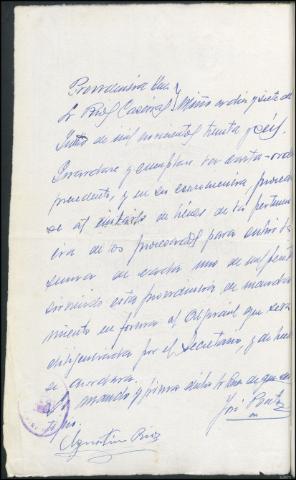 Providencia Juez
Sr Ruiz Casaval } Miño a diez y siete de
Julio de mil novecientos treinta y seis.
Guardese y cumplase la carta-orden
precedente, y en su consecuencia, proceda
se al embargo de bienes de la pertenen
cia de los procesados para cubrir la
suma de cada uno de
sirviendo esta providencia de manda
miento en forma al Alguacil que será
diligenciada por el Secretario, y de
se acordará.
Lo mandó y firma dicho Sr Juez de que cer
tifico.
Agustin Ruiz
José